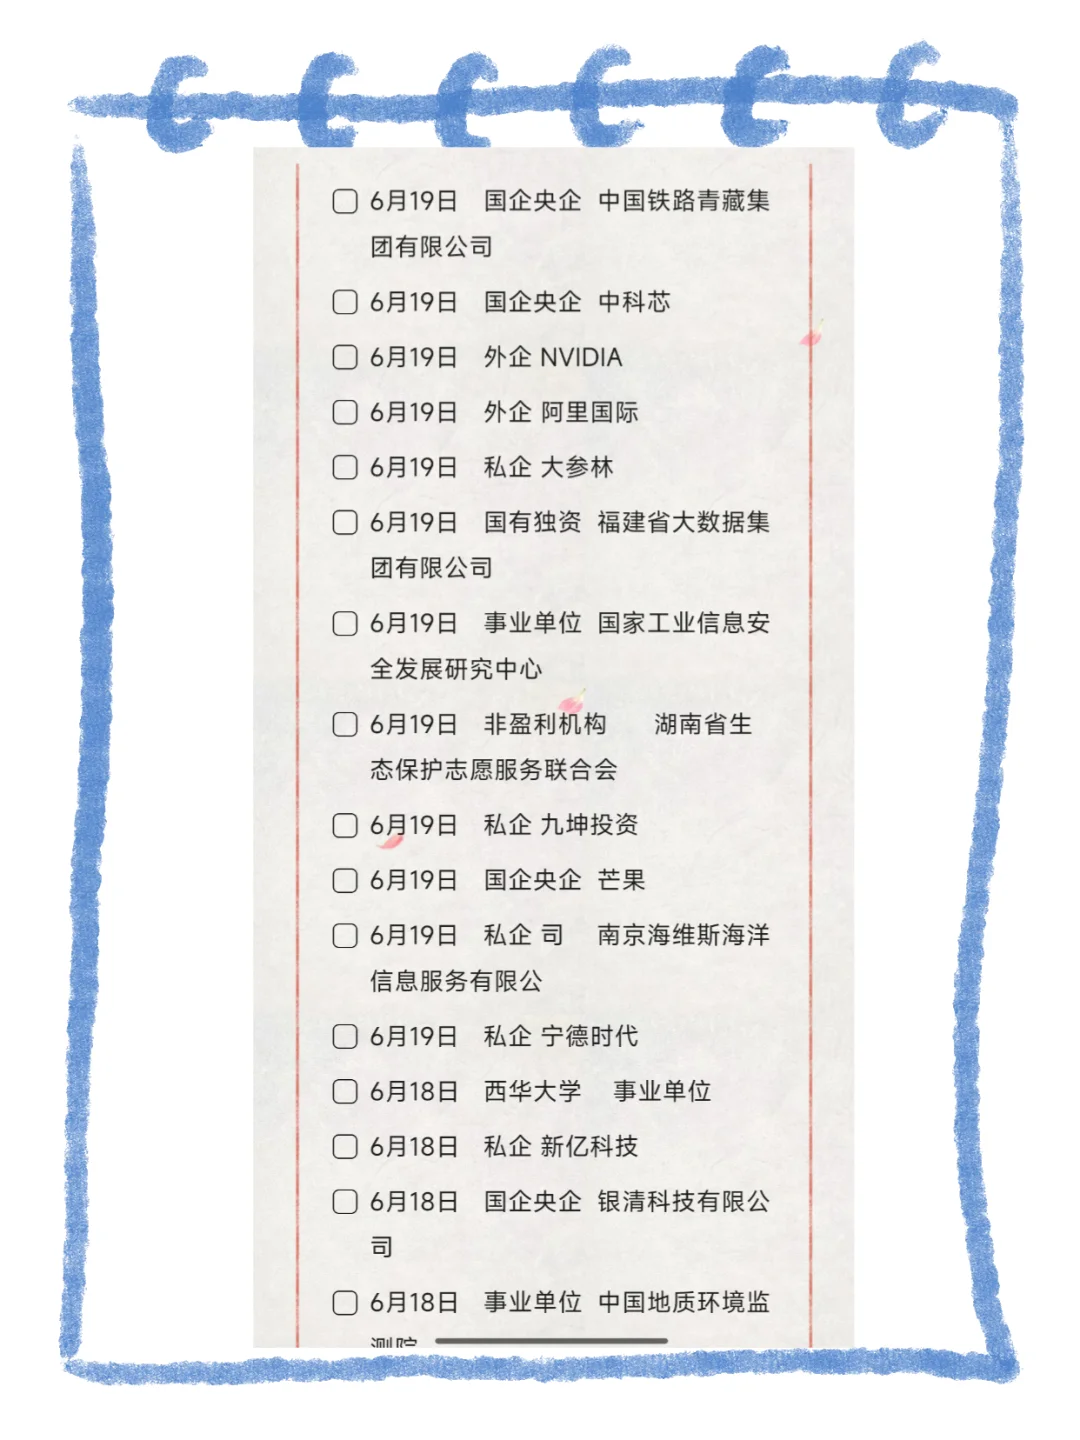 6月19日 国企央企 中国铁路青藏集
团有限公司
6月19日 国企央企 中科芯
6月19日 外企 NVIDIA
6月19日 外企 阿里国际
6月19日 私企 大参林
6月19日 国有独资 福建省大数据集
团有限公司
6月19日 事业单位 国家工业信息安
全发展研究中心
6月19日 非盈利机构 湖南省生
态保护志愿服务联合会
6月19日 私企 九坤投资
6月19日 国企央企 芒果
6月19日 私企 司 南京海维斯海洋
信息服务有限公
6月19日 私企 宁德时代
6月18日 西华大学 事业单位
6月18日 私企 新亿科技
6月18日 国企央企 银清科技有限公
司
6月18日 事业单位 中国地质环境监
测院